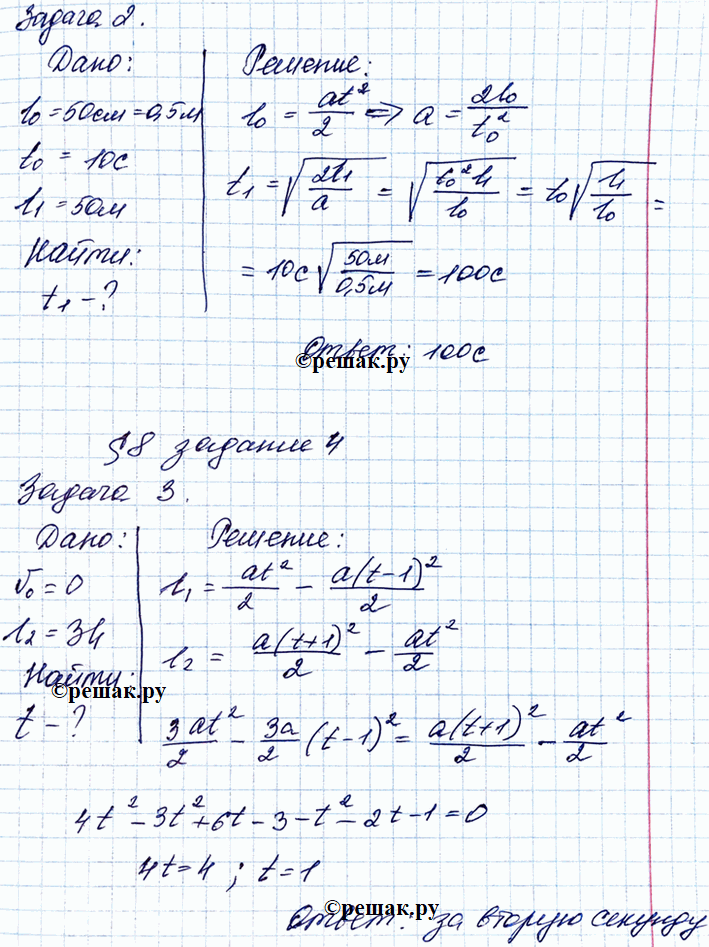 Задача 2.
Дано:
l₀ = 50см = 0,5м
t₀ = 10с
l₁ = 50м
Найти:
t₁ - ?
Решение:
l₀ = at²/2 => a = 2l₀/t₀²
t₁ = √(2l₁/a) = √(t₀²l₁/l₀) = t₀√(l₁/l₀) =
= 10с√(50м/0,5м) = 100с
Ответ: 100с
©решак.ру
§8 задание 4
Задача 3.
Дано:
v₀ = 0
l₂ = 3l₁
Найти:
©решак.ру
t - ?
Решение:
l₁ = at²/2 - a(t-1)²/2
l₂ = a(t+1)²/2 - at²/2
3at²/2 - 3a/2 (t-1)² = a(t+1)²/2 - at²/2
4t² - 3t² + 6t - 3 - t² - 2t - 1 = 0
4t = 4 ; t = 1
©решак.ру
Ответ: за вторую секунду